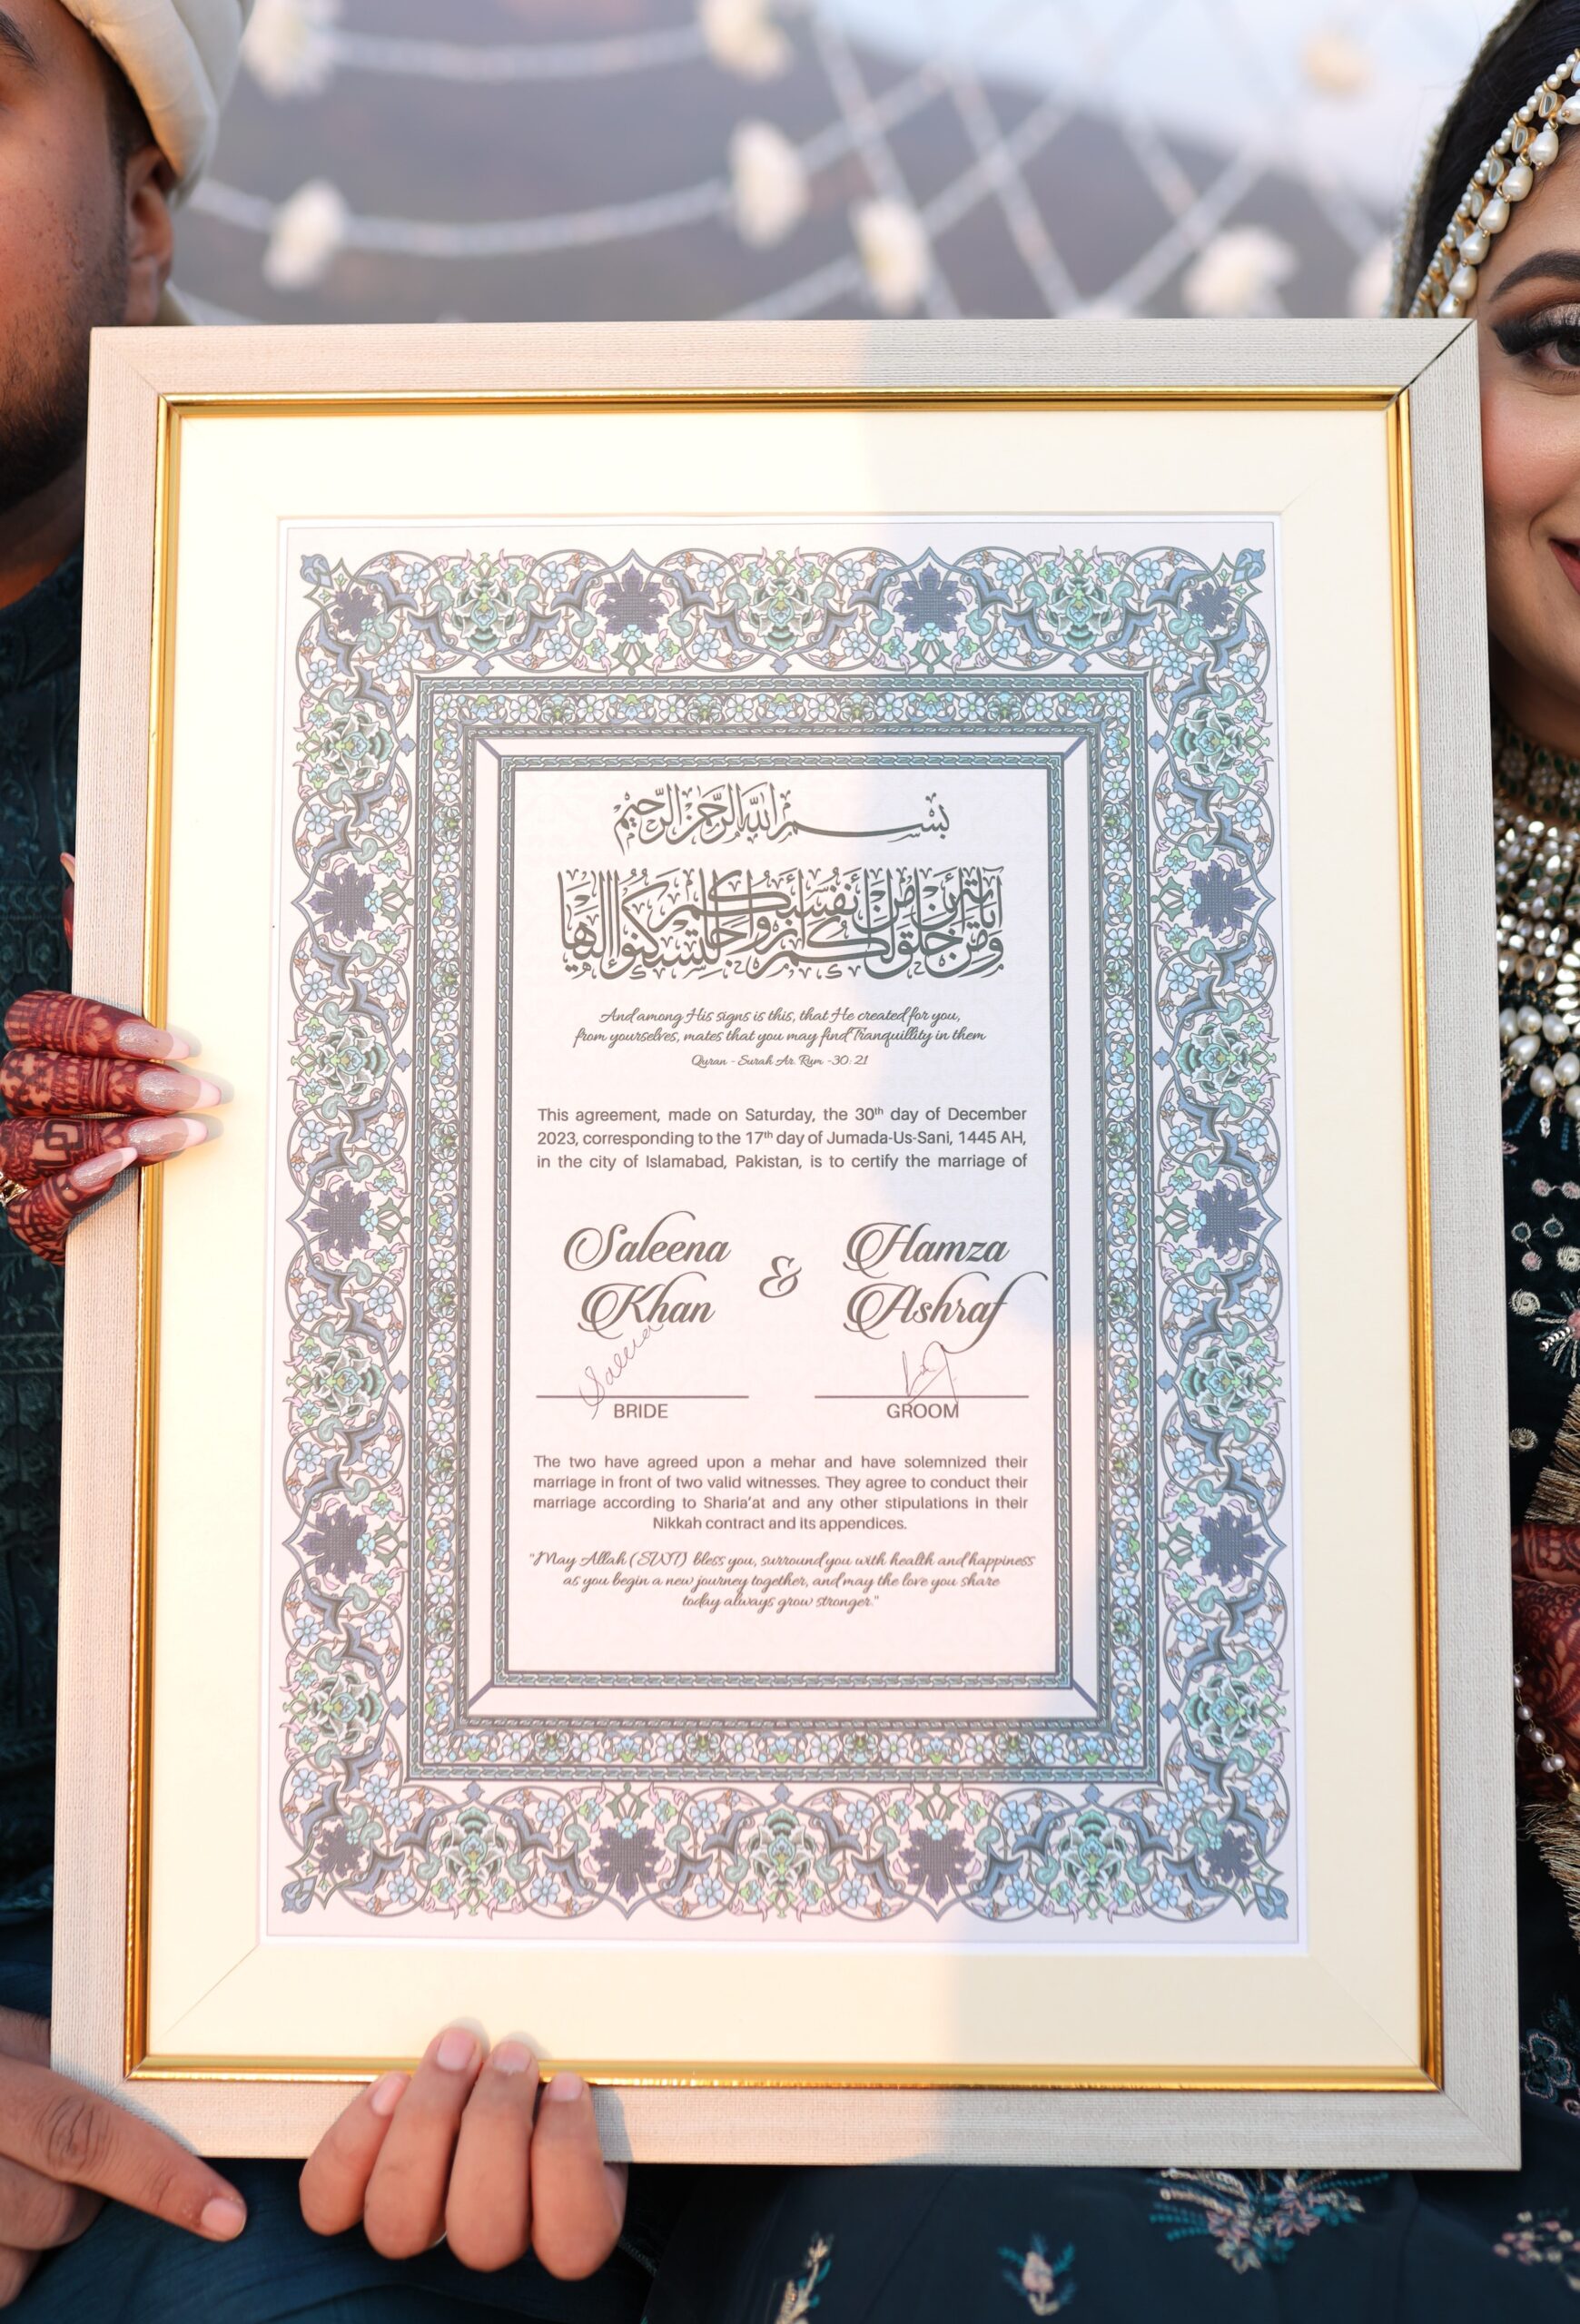 بسم الله الرحمن الرحيم
ومن آياته أن خلق لكم من أنفسكم أزواجا لتسكنوا إليها
And among His signs is this, that He created for you,
from yourselves, mates that you may find Tranquillity in them
Quran - Surah Ar. Rum -30: 21
This agreement, made on Saturday, the 30th day of December
2023, corresponding to the 17th day of Jumada-Us-Sani, 1445 AH,
in the city of Islamabad, Pakistan, is to certify the marriage of
Saleena Khan & Hamza Ashraf
Saleena
BRIDE GROOM
The two have agreed upon a mehar and have solemnized their
marriage in front of two valid witnesses. They agree to conduct their
marriage according to Sharia'at and any other stipulations in their
Nikkah contract and its appendices.
"May Allah (SWT) bless you, surround you with health and happiness
as you begin a new journey together, and may the love you share
today always grow stronger."